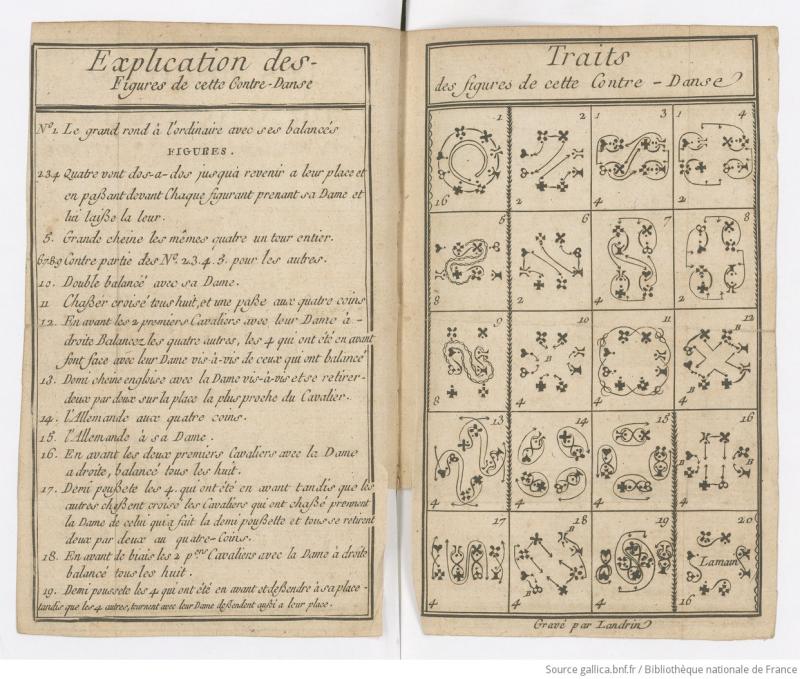 Explication des-
Figures de cette Contre-Danse
No. 1. Le grand rond à l'ordinaire avec ses balancés
FIGURES.
1.3.4 Quatre vont dos-a-dos jusqu'à revenir a leur place et
en paßant devant Chaque figurant prenant sa Dame et
lui laiße la leur.
5. Grande cheine les mêmes quatre un tour entier.
6.7.8.9 Contre partie des No. 2.3.4.5. pour les autres.
10. Double balancé avec sa Dame.
11 Chaßer croisé tous huit, et une paße aux quatre coins
12. En avant les 2 premiers Cavaliers avec leur Dame à-
droite Balancez les quatre autres, les 4 qui ont été en avant
font face avec leur Dame vis-à-vis de ceux qui ont balancé
13. Demi cheine engloise avec la Dame vis-à-vis et se retirer-
deux par deux sur la place la plus proche du Cavalier.
14. l'Allemande aux quatre coins.
15. l'Allemande à sa Dame.
16. En avant les deux premiers Cavaliers avec la Dame
a droite, balancé tous les huit.
17. Demi poußete les 4. qui ont été en avant tandis que les
autres cheßent croisé les Cavaliers qui ont chaßé prennent
la Dame de celui qui a fait la demi poußette et tous se retirent
deux par deux au quatre-Coins.
18. En avant de biais les 2 pers Cavaliers avec la Dame à droite
balancé tous les huit.
19. Demi poussete les 4 qui ont été en avant et deßendre à sa place-
tandis que les 4 autres, tournent avec leur Dame deßendent aussi a leur place.
Traits
des figures de cette Contre-Danse
1 2 1 3 1 4
16 2 4 2
5 6 7 8
8 2 4 2
9 10 11 12
B B
8 4 4 4
13 14 15 16
B B
4 4 4 4
17 18 19 20
B Lamain
4 B 4 4 16
Gravé par Landrin
Source gallica.bnf.fr / Bibliothèque nationale de France